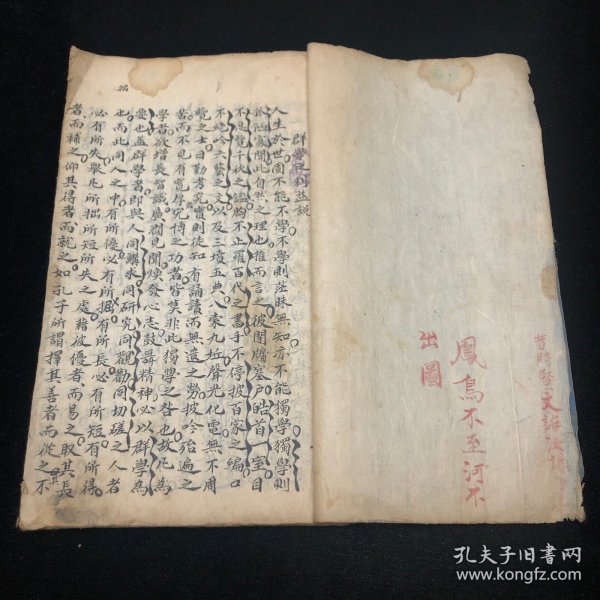 昔時賢文誨汝諄
鳳鳥不至河不
出圖
群學之利益說
人生於世固不能不學不學則茫昧無知亦不能獨學獨學則
孤陋寡聞此自然之理也推而言之彼閉牖塞戶皓首一室目
不見寬千秋之鑑胸不止羅百代之書手不停披百家之編口
不絕吟六藝之文以及三墳五典八索九坵聲光化電無不周
覽之士日勤考究實則徒知有誦讀而無遺之勞披吟殆遍之
苦而不見有寬厚究博之功者皆莫非此獨學之咎也故凡為
學者欲增長智識廣闊見聞煥發心志鼓舞精神必以群學為
要也盖群學者即與人同講求同研究同觀勸同切磋之人者
也而此同人之中有所優必有所掘有所長必有所短有所得
必有所失舉凡所拙所短所失之處藉彼優者而易之取其長
者而補之仰其得者而就之如孔子所謂擇其善者而從之不
孔夫子旧书网
www.kongfz.com